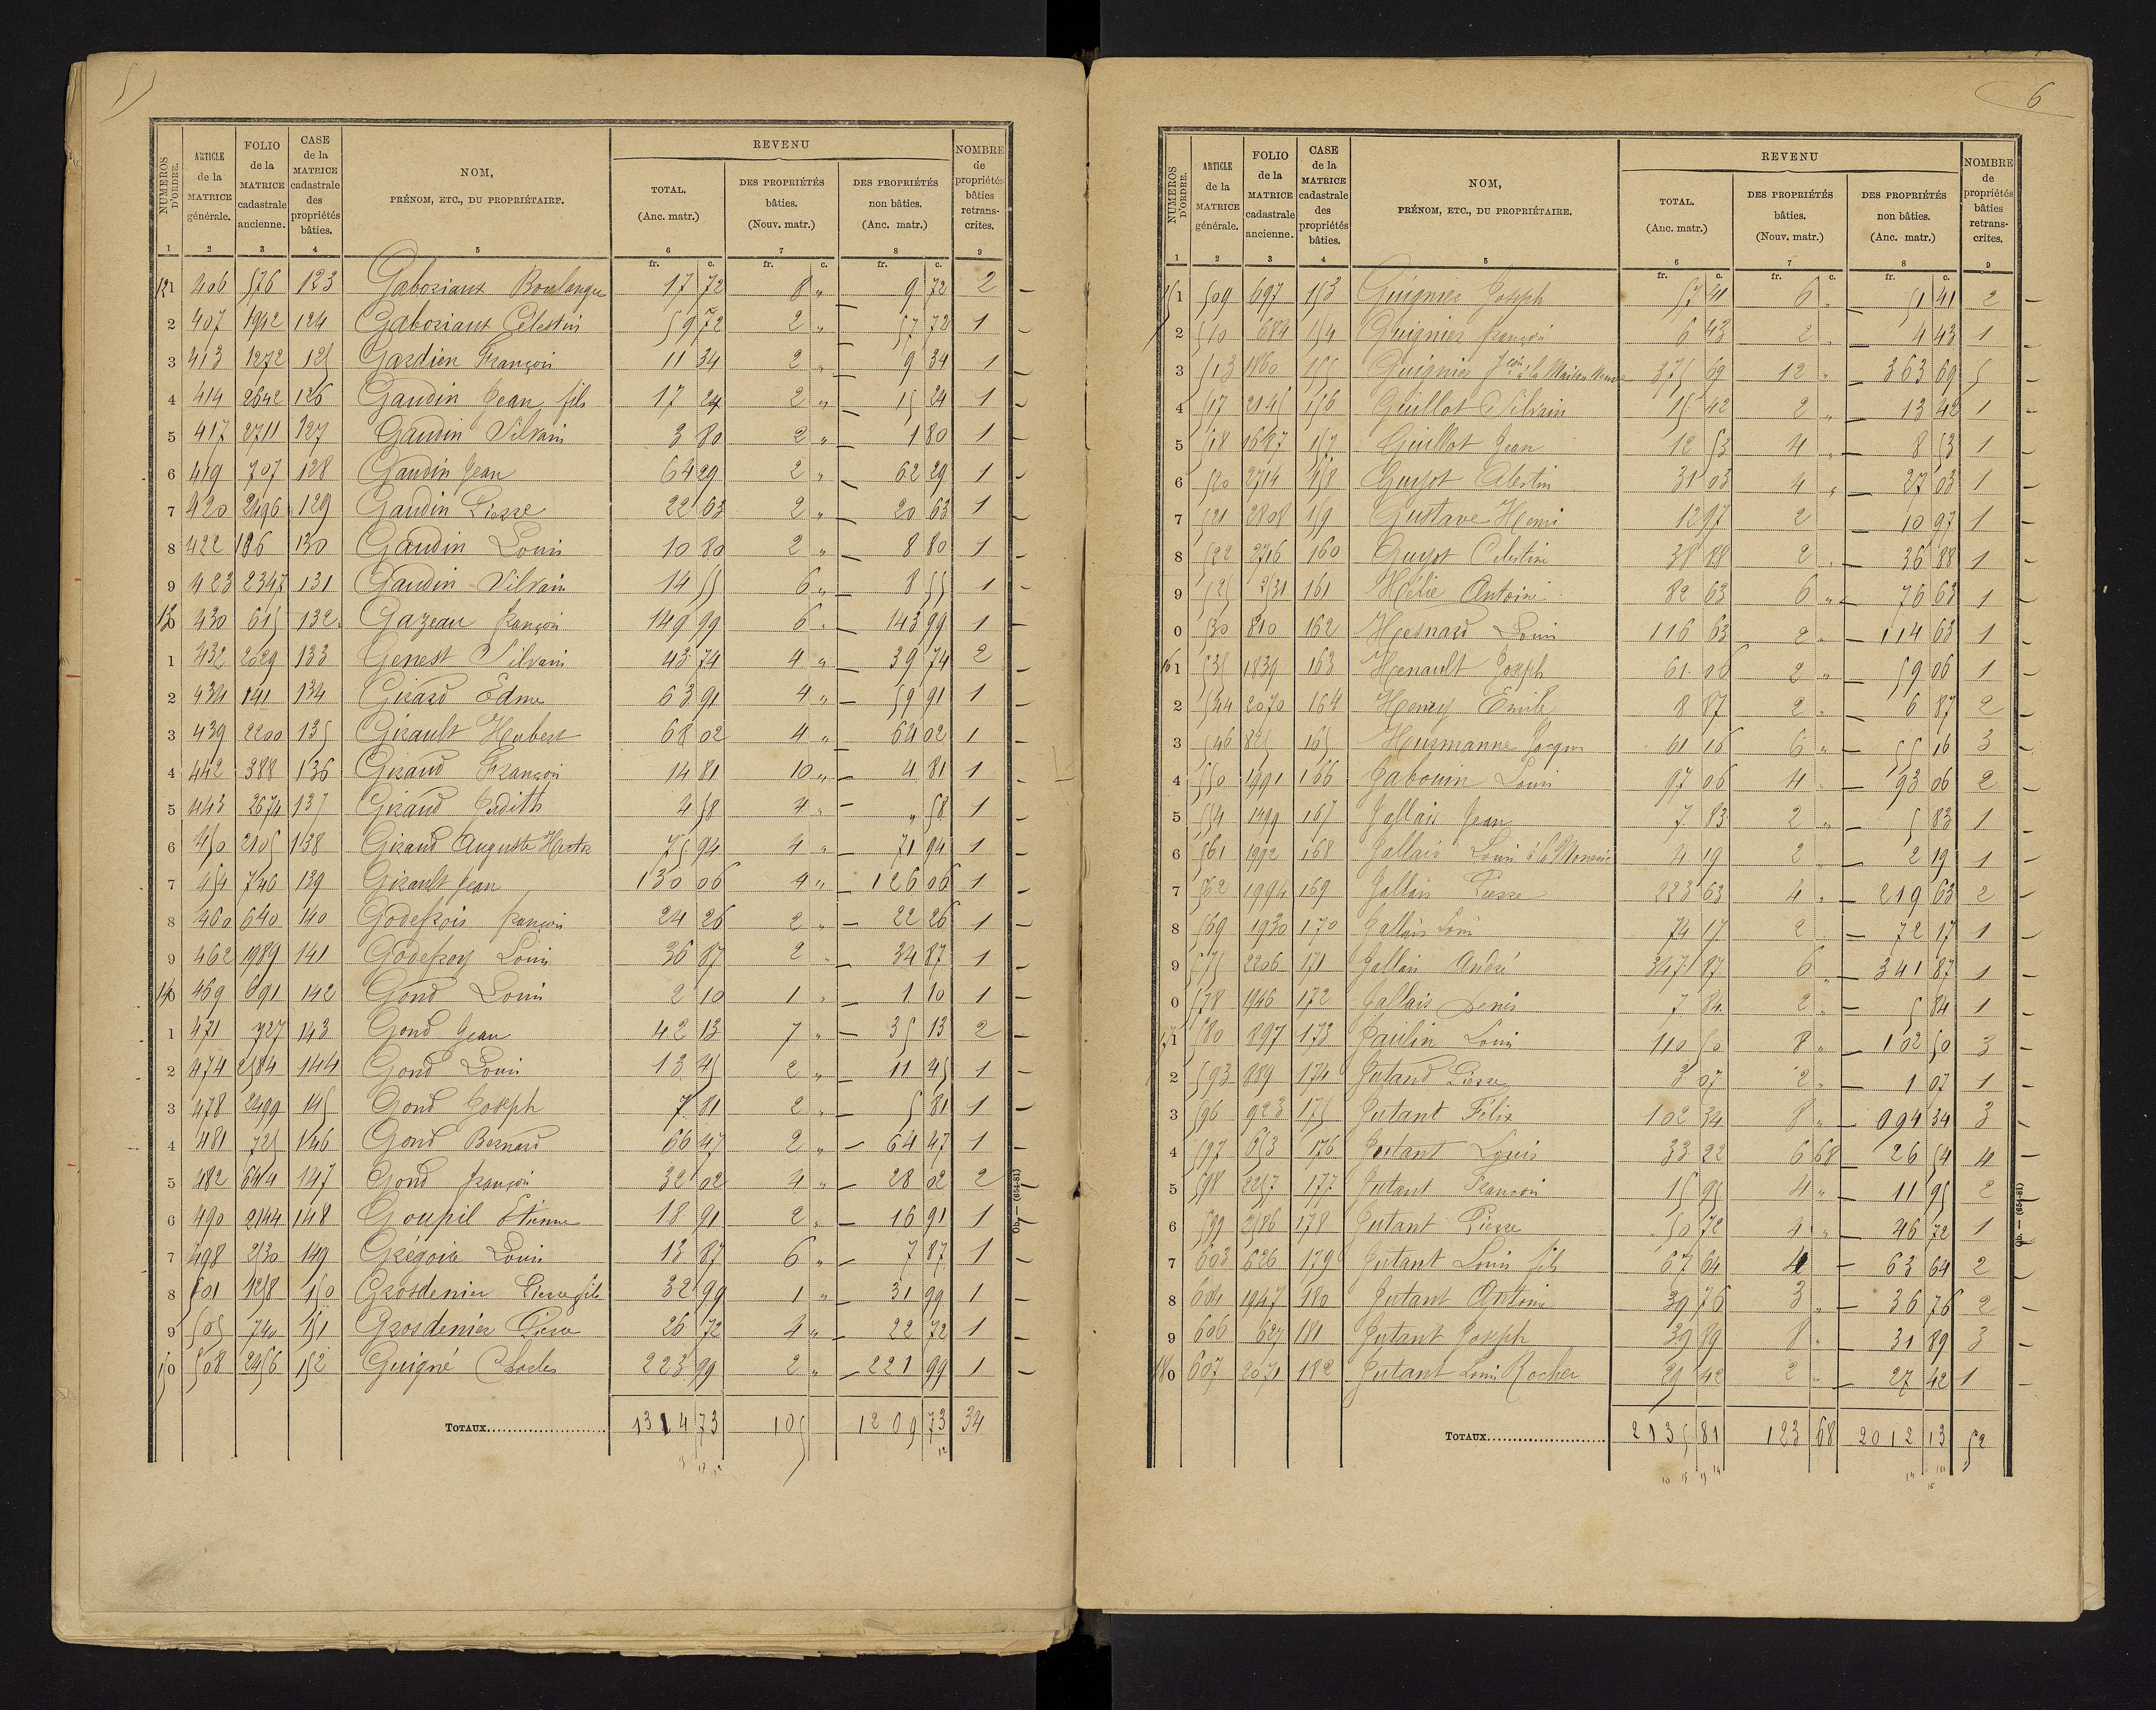 5
NUMÉROS D'ORDRE.
ARTICLE de la MATRICE générale.
FOLIO de la MATRICE cadastrale ancienne.
CASE de la MATRICE cadastrale des propriétés bâties.
NOM, PRÉNOM, ETC., DU PROPRIÉTAIRE.
REVENU
TOTAL. (Anc. matr.)
DES PROPRIÉTÉS bâties. (Nouv. matr.)
DES PROPRIÉTÉS non bâties. (Anc. matr.)
NOMBRE de propriétés bâties retranscrites.
1 2 3 4 5 6 7 8 9
fr. c. fr. c. fr. c.
121 406 576 123 Gaboriaux Boulanger 17 72 8 " 9 72 2
2 407 1912 124 Gaboriaux Célestin 59 72 2 " 57 72 1
3 413 1272 125 Gardien François 11 34 2 " 9 34 1
4 414 2642 126 Gaudin Jean fils 17 24 2 " 15 24 1
5 417 2711 127 Gaudin Silvain 3 80 2 " 1 80 1
6 419 707 128 Gaudin Jean 64 29 2 " 62 29 1
7 420 2496 129 Gaudin Pierre 22 63 2 " 20 63 1
8 422 196 130 Gaudin Louis 10 80 2 " 8 80 1
9 423 2347 131 Gaudin Silvain 14 55 6 " 8 55 1
130 430 615 132 Gazeau françois 149 99 6 " 143 99 1
1 432 2629 133 Genest Silvain 43 74 4 " 39 74 2
2 434 141 134 Girard Edme 63 91 4 " 59 91 1
3 439 2200 135 Girault Hubert 68 02 4 " 64 02 1
4 442 388 136 Giraud François 14 81 10 " 4 81 1
5 443 2674 137 Giraud Judith 4 58 4 " " 58 1
6 450 2105 138 Giraud Auguste Hector 75 94 4 " 71 94 1
7 454 746 139 Girault Jean 130 06 4 " 126 06 1
8 460 640 140 Godefrois françois 24 26 2 " 22 26 1
9 462 1989 141 Godefroy Louis 36 87 2 " 34 87 1
140 469 691 142 Gond Louis 2 10 1 " 1 10 1
1 471 727 143 Gond Jean 42 13 7 " 35 13 2
2 474 2584 144 Gond Louis 13 45 2 " 11 45 1
3 478 2499 145 Gond Joseph 7 81 2 " 5 81 1
4 481 725 146 Gond Bernard 66 47 2 " 64 47 1
5 482 644 147 Gond françois 32 02 4 " 28 02 2
6 490 2144 148 Goupil Etienne 18 91 2 " 16 91 1
7 498 2130 149 Grégoire Louis 13 87 6 " 7 87 1
8 501 1258 150 Grosdenier Pierre fils 32 99 1 " 31 99 1
9 505 740 151 Grosdenier Pierre 26 72 4 " 22 72 1
150 508 2456 152 Guigné Charles 223 99 2 " 221 99 1
TOTAUX 1314 73 105 1209 73 34
Ob. — (654-81)
6
NUMÉROS D'ORDRE.
ARTICLE de la MATRICE générale.
FOLIO de la MATRICE cadastrale ancienne.
CASE de la MATRICE cadastrale des propriétés bâties.
NOM, PRÉNOM, ETC., DU PROPRIÉTAIRE.
REVENU
TOTAL. (Anc. matr.)
DES PROPRIÉTÉS bâties. (Nouv. matr.)
DES PROPRIÉTÉS non bâties. (Anc. matr.)
NOMBRE de propriétés bâties retranscrites.
1 2 3 4 5 6 7 8 9
fr. c. fr. c. fr. c.
151 509 697 153 Guignier Joseph 57 41 6 " 51 41 2
2 510 684 154 Guignier françois 6 43 2 " 4 43 1
3 513 1860 155 Guignier à la Maison Neuve 375 69 12 " 363 69 5
4 517 2145 156 Guillot Silvain 15 42 2 " 13 42 1
5 518 1687 157 Guillot Jean 12 53 4 " 8 53 1
6 520 2714 158 Guyot Célestin 31 03 4 " 27 03 1
7 521 2808 159 Gustave Henri 12 97 2 10 97 1
8 522 2716 160 Guyot Célestine 38 88 2 " 36 88 1
9 525 2531 161 Hélie Antoine 82 63 6 " 76 63 1
0 530 810 162 Hesnard Louis 116 63 2 " 114 63 1
161 535 1839 163 Henault Joseph 61 06 2 " 59 06 1
2 544 2070 164 Henry Emile 8 87 2 " 6 87 2
3 546 825 165 Hurmanne Jacques 61 16 6 " 55 16 3
4 550 1991 166 Jabouin Louis 97 06 4 " 93 06 2
5 554 1499 167 Jallais Jean 7 83 2 " 5 83 1
6 561 1992 168 Jallais Louis à la 4 19 2 " 2 19 1
7 562 1994 169 Jallais Pierre 223 63 4 " 219 63 2
8 569 1930 170 Jallais Louis 74 17 2 72 17 1
9 575 2206 171 Jallais André 347 87 6 " 341 87 1
0 578 1946 172 Jallais Denis 7 84 2 " 5 84 1
171 580 897 173 Jaulin Louis 110 50 8 " 102 50 3
2 593 889 174 Jutand Pierre 3 07 2 " 1 07 1
3 596 923 175 Jutant Félix 102 34 8 " 094 34 3
4 597 653 176 Jutant Louis 33 22 6 68 26 54 4
5 598 2257 177 Jutant François 15 95 4 " 11 95 2
6 599 2586 178 Jutant Pierre 50 72 4 " 46 72 1
7 603 626 179 Jutant Louis fils 67 64 4 63 64 2
8 604 1947 180 Jutant Antoine 39 76 3 " 36 76 2
9 606 627 181 Jutant Joseph 39 89 8 " 31 89 3
180 607 2071 182 Jutant Louis Rocher 29 42 2 " 27 42 1
TOTAUX 2135 81 123 68 2012 13 52
Ob. — (654-81)